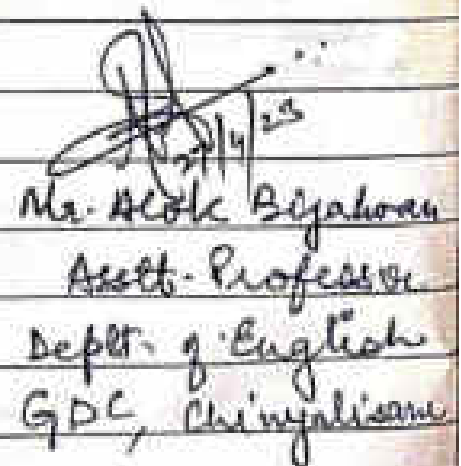 27/4/23
Mr. Alok Bijalwan
Asstt. Professor
Deptt. of English
GDC, Chinyalisaur